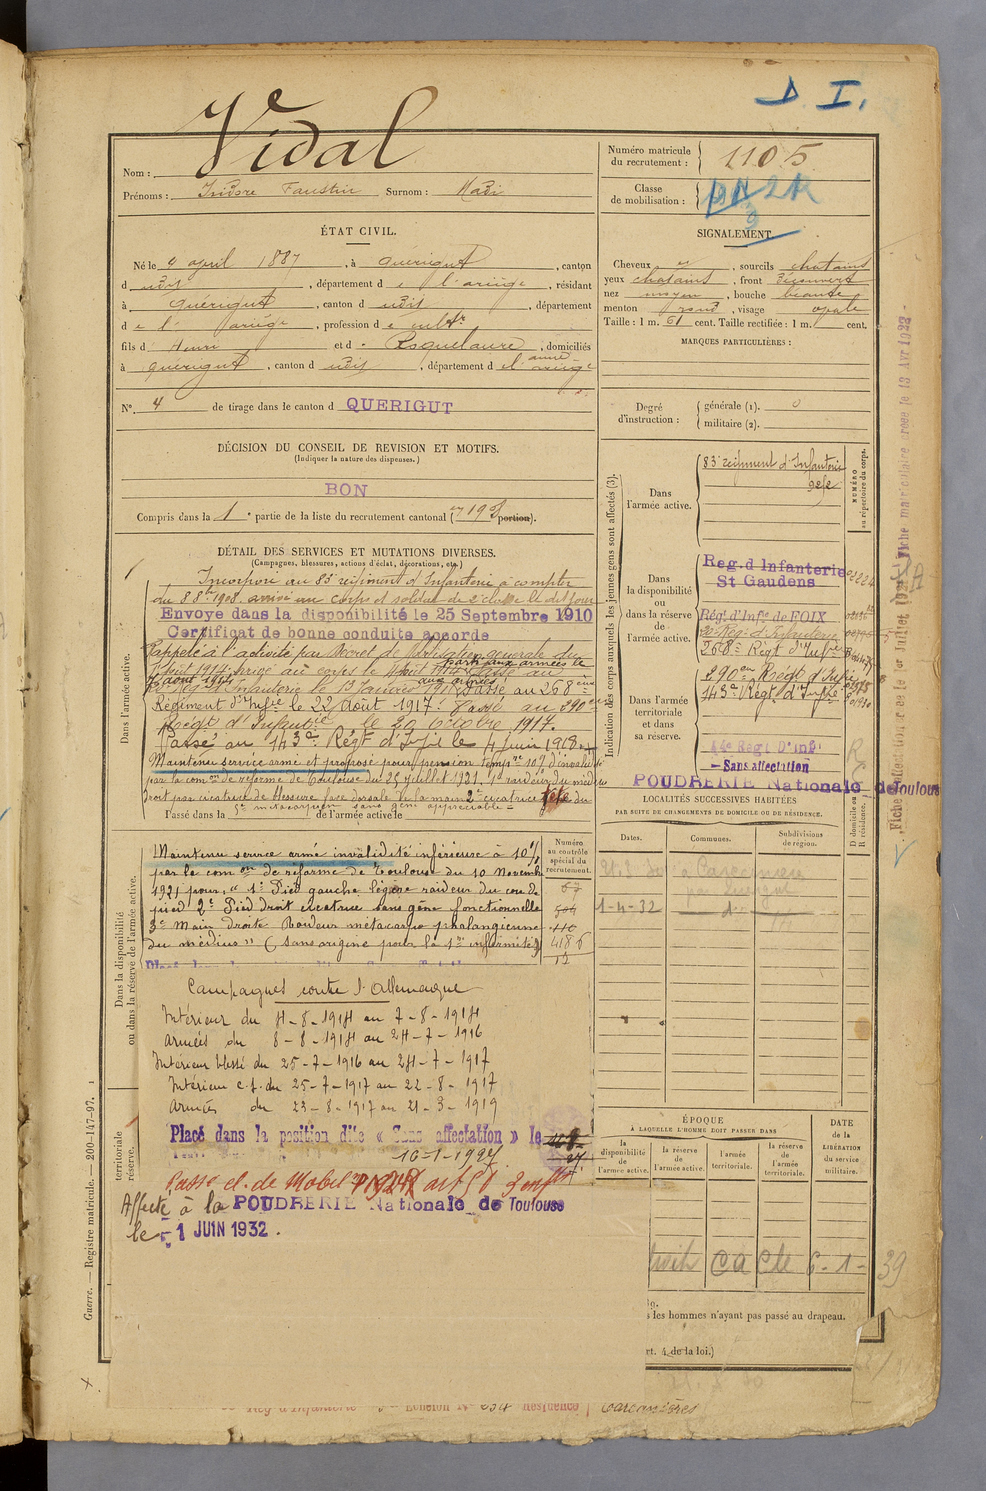 D. I.
Vidal
Nom :
Prénoms : Isidore Faustin Surnom : Nadi
Numéro matricule du recrutement : 1105
Classe de mobilisation :
ÉTAT CIVIL.
Né le 4 april 1887, à Quérigut, canton
d udit, département d e l'ariège, résidant
à Quérigut, canton d udit, département
d e l' ariège, profession d e cultr
fils d' Henri et d Roquelaure, domiciliés
à Quérigut, canton d udit, département d e l'ariège
N° 4 de tirage dans le canton d QUERIGUT
SIGNALEMENT
Cheveux et, sourcils chatains
yeux chatains, front découvert
nez moyen, bouche béante
menton rond, visage ovale
Taille : 1 m. 61 cent. Taille rectifiée : 1 m. cent.
MARQUES PARTICULIÈRES :
Degré d'instruction : générale (1). 0
militaire (2).
DÉCISION DU CONSEIL DE REVISION ET MOTIFS.
(Indiquer la nature des dispenses.)
BON
Compris dans la 1e partie de la liste du recrutement cantonal ( portion).
DÉTAIL DES SERVICES ET MUTATIONS DIVERSES.
(Campagnes, blessures, actions d'éclat, décorations, etc.)
Dans l'armée active.
Incorporé au 83e régiment d'Infanterie à compter
du 8 8bre 1908. arrivé au corps et soldat de 2e classe le dit jour
Envoye dans la disponibilité le 25 Septembre 1910
Certificat de bonne conduite accorde
Rappelé à l'activité par décret de mobilisation générale du
août 1914 arrivé au corps le août 1914
parti aux armées le
7 août 1914
aux armées
Rég d'Infanterie le 13 Janvier Passé au 268ème
Régiment d'Infie le 22 Août 1917. Passé au 290e
Régt d'Infantie le 20 Octobre 1917.
Passé au 143e Régt d'Infie le 4 juin 1918
Maintenu service armé et proposé pour pension tempre 10% d'invalidité
par la comon de réforme de Toulouse du 25 Juillet 1921, 1° raideur du médius
droit par cicatrice de blessure face dorsale de la main 2° cicatrice tête du
5e métatarsien sans gêne appréciable =
Passé dans la de l'armée active le
Indication des corps auxquels les jeunes gens sont affectés (3).
Dans l'armée active.
83 régiment d'Infanterie
NUMÉRO au répertoire du corps.
Dans la disponibilité ou dans la réserve de l'armée active.
Reg. d Infanterie
St Gaudens
Régt. d'Infie de FOIX
268e Régt d'Infie
Dans l'armée territoriale et dans sa réserve.
290e Régt d'Infie
143e Régt d'Infie
Régt D'Inf
— Sans affectation
POUDRERIE Nationale de Toulouse
LOCALITÉS SUCCESSIVES HABITÉES
PAR SUITE DE CHANGEMENTS DE DOMICILE OU DE RÉSIDENCE.
Dates. Communes. Subdivisions de région. D domicile ou R résidence.
à Carcanières
par Quérigut
1-4-32 — do
Dans la disponibilité ou dans la réserve de l'armée active.
Numéro au contrôle spécial du recrutement.
4186
12
Maintenu service armé invalidité inférieure à 10%
par la comon de réforme de Toulouse du 10 Novembre
1921 pour, « 1° Pied gauche légère raideur du cou de
pied 2° Pied droit cicatrice sans gêne fonctionnelle
3° Main droite Roideur métacarpo phalangienne
du médius » (sans origine pour la 1re infirmité)
Campagnes contre l'Allemagne
Intérieur du 4-8-1914 au 7-8-1914
Armées du 8-8-1914 au 24-7-1916
Intérieur blessé du 25-7-1916 au 24-7-1917
Intérieur c.f. du 25-7-1917 au 22-8-1917
Armées du 23-8-1917 au 21-3-1919
Placé dans la position dite « Sans affectation » le
10-1-1927
Affecté à la POUDRERIE Nationale de Toulouse
le - 1 JUIN 1932.
territoriale
réserve.
ÉPOQUE
À LAQUELLE L'HOMME DOIT PASSER DANS
la disponibilité de l'armée active.
la réserve de l'armée active.
l'armée territoriale.
la réserve de l'armée territoriale.
DATE de la LIBÉRATION du service militaire.
6-1-39
les hommes n'ayant pas passé au drapeau.
rt. 4 de la loi.)
Rég d'Infanterie Echelon Résidence Carcanières
Guerre. — Registre matricule. — 200-147-97.
Fiche matriculaire créée le 13 Avr 1933